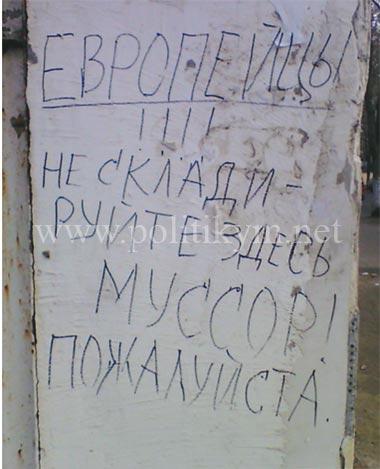 ЕВРОПЕЙЦЫ
!!!!
НЕ СКЛАДИ-
РУЙТЕ ЗДЕСЬ
www.politikym.net
МУССОР!
ПОЖАЛУЙСТА.